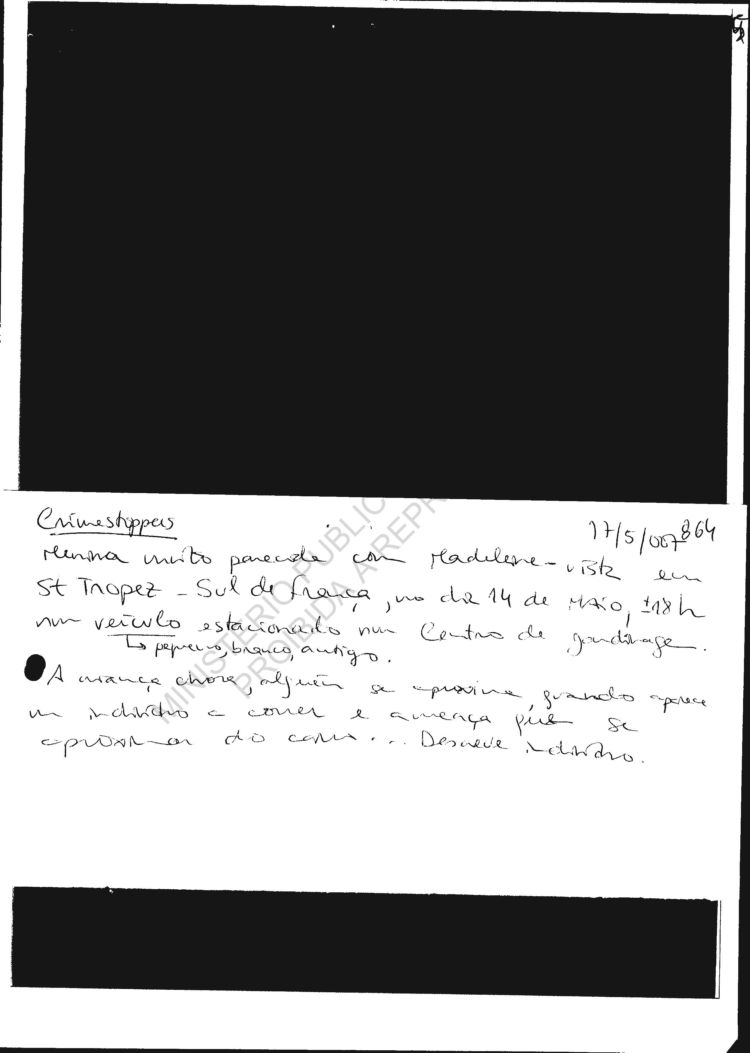 Crimestoppers
17/5/007 864
Menina muito parecida com Madeleine - vista em
St Tropez - Sul de França, no dia 14 de MAIO, ±18h
num veículo estacionado num Centro de jardinage.
↳ pequeno, branco, antigo.
A criança chora, alguém se aproxima, quando aparece
um indivíduo a correr e ameaça quem se
aproximar do carro... Descreve indivíduo.
MINISTERIO PUBLIC
PROIBIDA A REPR